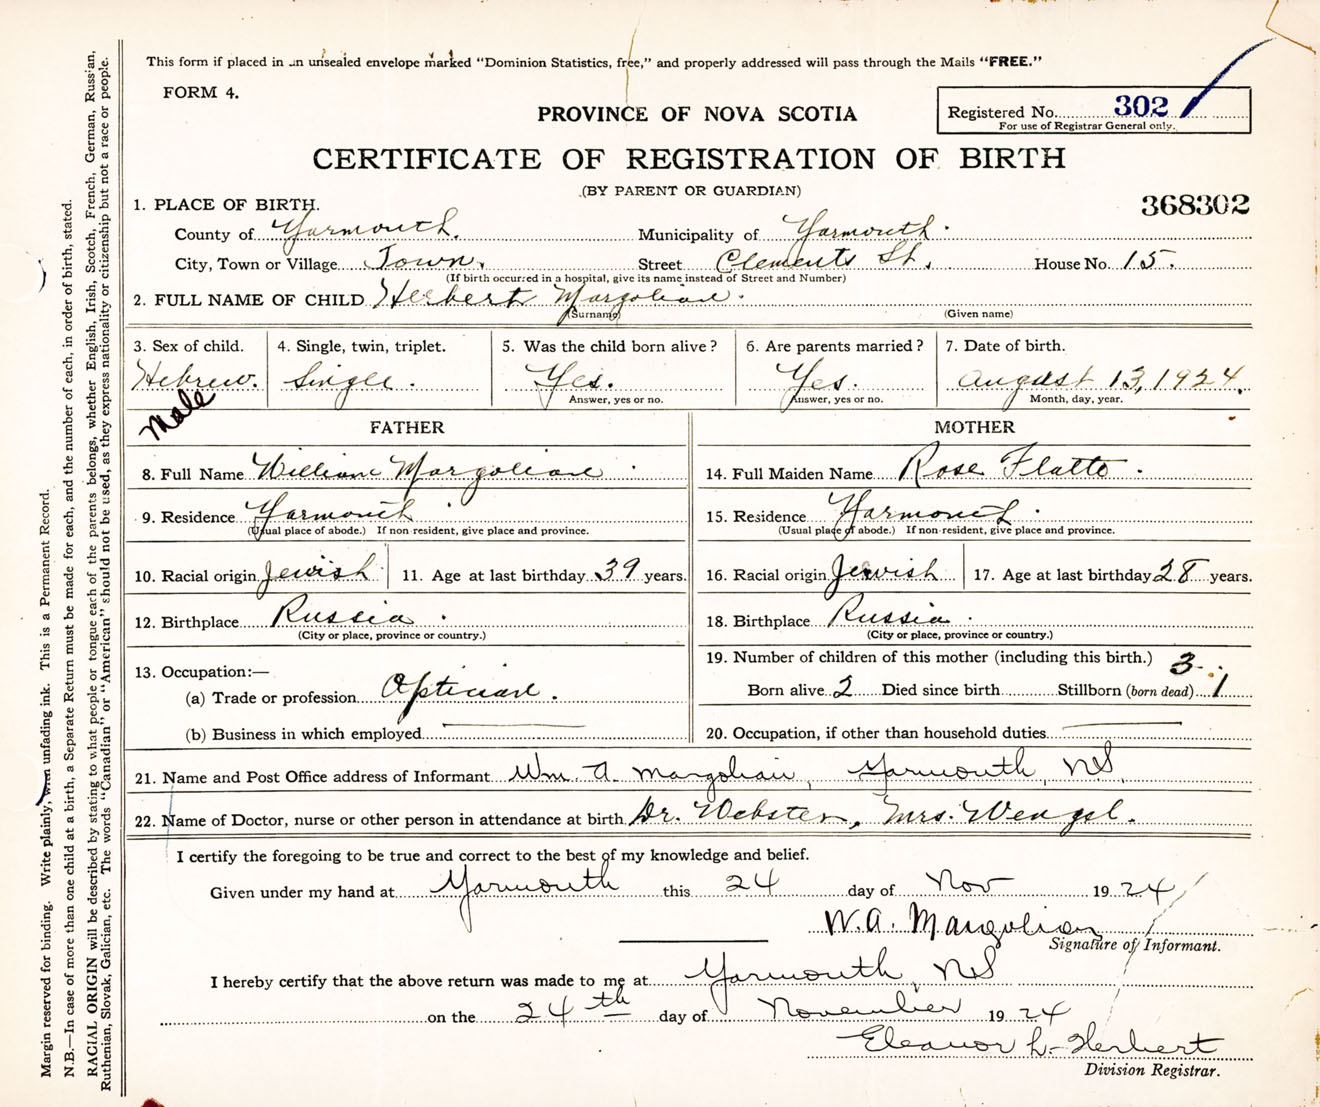 This form if placed in an unsealed envelope marked "Dominion Statistics, free," and properly addressed will pass through the Mails "FREE."
FORM 4.
PROVINCE OF NOVA SCOTIA
Registered No. 302
For use of Registrar General only.
CERTIFICATE OF REGISTRATION OF BIRTH
(BY PARENT OR GUARDIAN)
368302
1. PLACE OF BIRTH.
County of Yarmouth. Municipality of Yarmouth.
City, Town or Village Town. Street Clements St. House No. 15.
(If birth occurred in a hospital, give its name instead of Street and Number)
2. FULL NAME OF CHILD Herbert Margolian.
(Surname) (Given name)
3. Sex of child. 4. Single, twin, triplet. 5. Was the child born alive? 6. Are parents married? 7. Date of birth.
Hebrew. Single. Yes. Yes. August 13, 1924.
Answer, yes or no. Answer, yes or no. Month, day, year.
Male
FATHER MOTHER
8. Full Name William Margolian. 14. Full Maiden Name Rose Flatto.
9. Residence Yarmouth. 15. Residence Yarmouth.
(Usual place of abode.) If non-resident, give place and province. (Usual place of abode.) If non-resident, give place and province.
10. Racial origin Jewish 11. Age at last birthday 39 years. 16. Racial origin Jewish 17. Age at last birthday 28 years.
12. Birthplace Russia. 18. Birthplace Russia.
(City or place, province or country.) (City or place, province or country.)
19. Number of children of this mother (including this birth.) 3.
13. Occupation:—
(a) Trade or profession Optician. Born alive 2 Died since birth Stillborn (born dead) 1
(b) Business in which employed 20. Occupation, if other than household duties
21. Name and Post Office address of Informant Wm. A. Margolian, Yarmouth, NS.
22. Name of Doctor, nurse or other person in attendance at birth Dr. Webster, Mrs. Wengel.
I certify the foregoing to be true and correct to the best of my knowledge and belief.
Given under my hand at Yarmouth this 24 day of Nov 1924
W. A. Margolian
Signature of Informant.
I hereby certify that the above return was made to me at Yarmouth, NS
on the 24th day of November 1924
Eleanor L. Herbert
Division Registrar.
Margin reserved for binding. Write plainly, with unfading ink. This is a Permanent Record.
N.B.—In case of more than one child at a birth, a Separate Return must be made for each, and the number of each, in order of birth, stated.
RACIAL ORIGIN will be described by stating to what people or tongue each of the parents belongs, whether English, Irish, Scotch, French, German, Russian,
Ruthenian, Slovak, Galician, etc. The words "Canadian" or "American" should not be used, as they express nationality or citizenship but not a race or people.